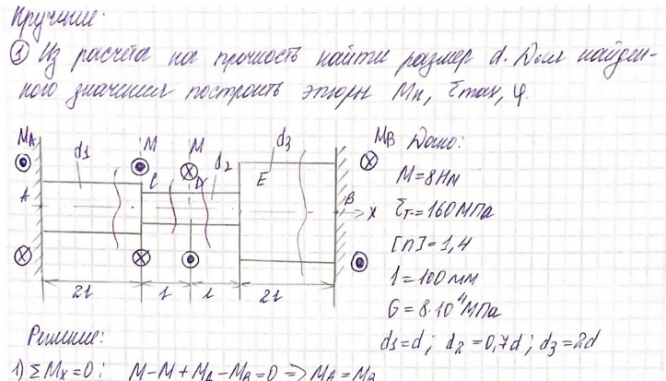 Кручение:
① Из расчёта на прочность найти размер d. Для найден-
ного значения построить эпюры Mк, τmax, φ.
MA M M MB Дано:
d1 d2 d3
A C D E B x
M=8Нм
τт=160МПа
[n]=1,4
l=100мм
G=8·10⁴МПа
2l l l 2l
d1=d; d2=0,7d; d3=2d
Решение:
1) ΣMx=0; M-M+MA-MB=0 => MA=MB